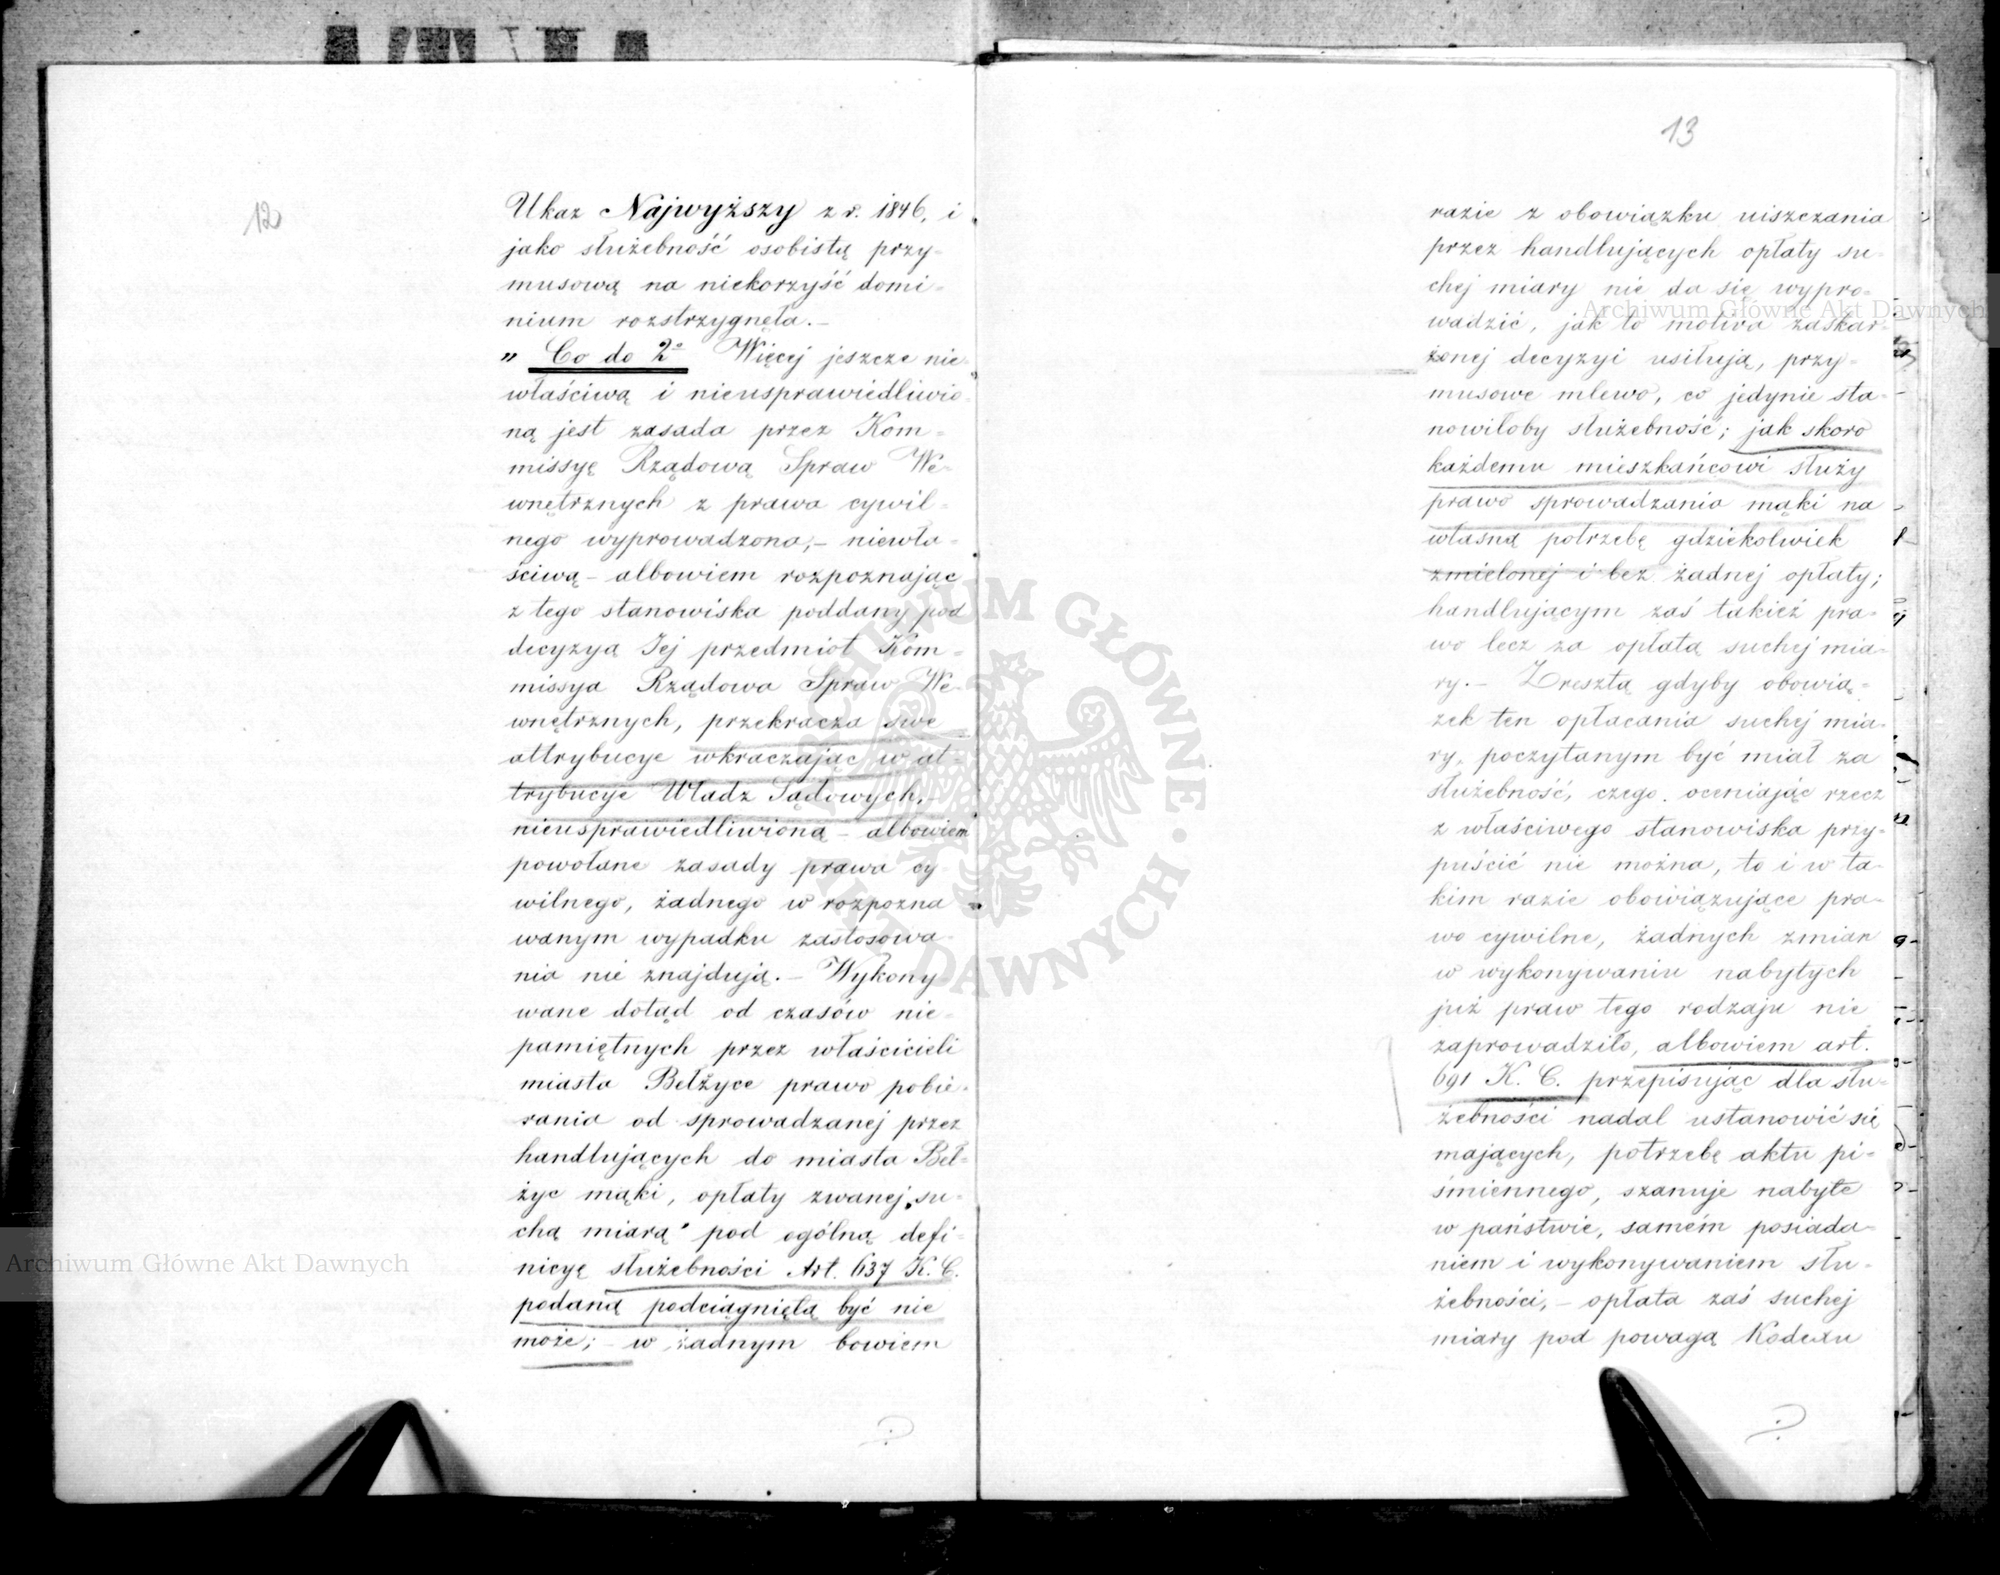 12
Ukaz Najwyższy z r. 1846, i
jako służebność osobistą przy-
musową na niekorzyść domi-
nium rozstrzygnęła.-
„ Co do 2° Więcej jeszcze nie-
właściwą i nieusprawiedliwio-
ną jest zasada przez Kom-
missyę Rządową Spraw We-
wnętrznych z prawa cywil-
nego wyprowadzona,- niewła-
ściwą - albowiem rozpoznając
z tego stanowiska poddany pod
decyzyą Jej przedmiot Kom-
missya Rządowa Spraw We-
wnętrznych, przekracza swe
attrybucye wkraczając w at-
trybucye Władz Sądowych,-
nieusprawiedliwioną - albowiem
powołane zasady prawa cy-
wilnego, żadnego w rozpozna
wanym wypadku zastosowa-
nia nie znajdują.- Wykony
wane dotąd od czasów nie-
pamiętnych przez właścicieli
miasta Bełżyce prawo pobie-
rania od sprowadzanej przez
handlujących do miasta Beł-
życ mąki, opłaty zwanej „su-
chą miarą" pod ogólną defi-
nicyę służebności Art. 637 K. C.
podaną podciągniętą być nie
może; - w żadnym bowiem
13
razie z obowiązku uiszczania
przez handlujących opłaty su-
chej miary nie da się wypro-
wadzić, jak to motiva zaskar-
żonej decyzyi usiłują, przy-
musowe mlewo, co jedynie sta-
nowiłoby służebność; jak skoro
każdemu mieszkańcowi służy
prawo sprowadzania mąki na
własną potrzebę gdziekolwiek
zmielonej i bez żadnej opłaty;
handlującym zaś takież pra-
wo lecz za opłatą suchej mia-
ry.- Zresztą gdyby obowią-
zek ten opłacania suchej mia-
ry, poczytanym być miał za
służebność, czego oceniając rzecz
z właściwego stanowiska przy-
puścić nie można, to i w ta-
kim razie obowiązujące pra-
wo cywilne, żadnych zmian
w wykonywaniu nabytych
już praw tego rodzaju nie
zaprowadziło, albowiem art.
691 K. C. przepisując dla słu-
żebności nadal ustanowić się
mających, potrzebę aktu pi-
śmiennego, szanuje nabyte
w państwie, samém posiada-
niem i wykonywaniem słu-
żebności,- opłata zaś suchej
miary pod powagą Kodexu
Archiwum Główne Akt Dawnych
Archiwum Główne Akt Dawnych
ARCHIWUM GŁÓWNE AKT DAWNYCH